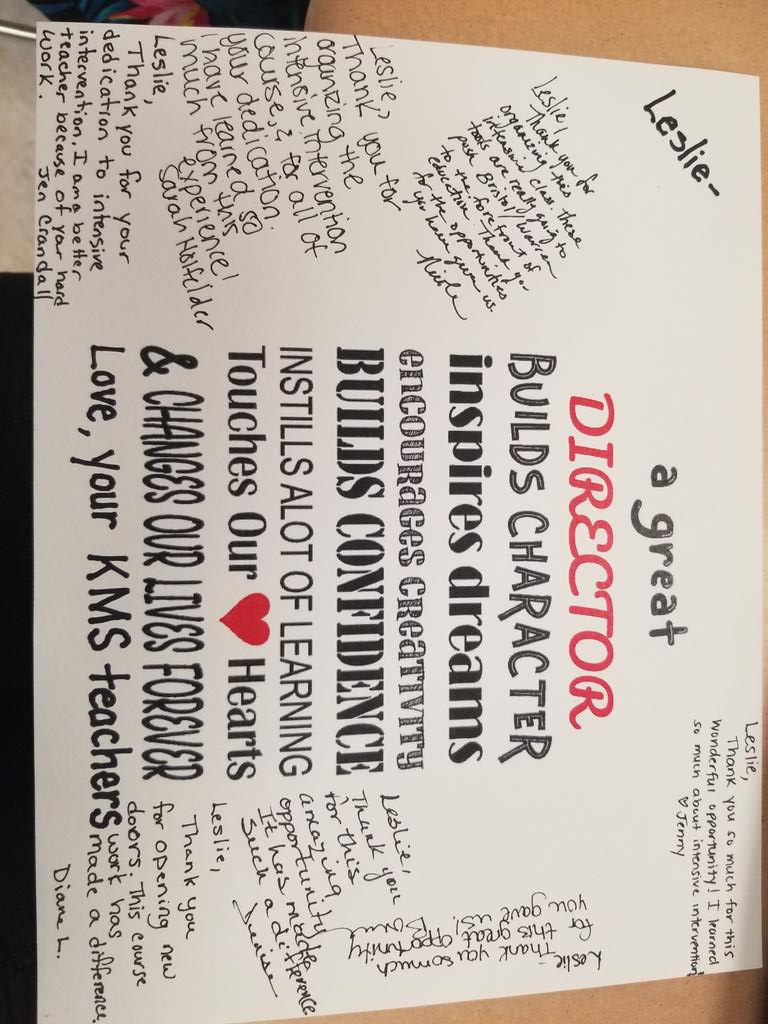 Leslie-
a great
DIRECTOR
BUILDS CHARACTER
inspires dreams
encourages creativity
BUILDS CONFIDENCE
INSTILLS ALOT OF LEARNING
Touches Our ❤ Hearts
& CHANGES OUR LIVES FOREVER
Love, your KMS teachers
Leslie,
Thank you for
organizing this
intensive class. These
tools are really going to
push Bristol/Warren
to the forefront of
education. Thank you
for the opportunities
you have given us.
Nicole
Leslie,
Thank you for
organizing the
intensive intervention
course, & for all of
your dedication.
I have learned so
much from this
experience!
Sarah Holfelder
Leslie,
Thank you for your
dedication to intensive
intervention. I am a better
teacher because of your hard
work.
Jen Crandall
Leslie,
Thank you so much for this
wonderful opportunity! I learned
so much about intensive intervention!
♡ Jenny
Leslie-
Thank you so much
for this great opportunity
you gave us!
Leslie,
Thank you
for this
amazing
opportunity
It has made
such a difference
Denise
Leslie,
Thank you
for opening new
doors. This course
work has
made a difference.
Diane L.